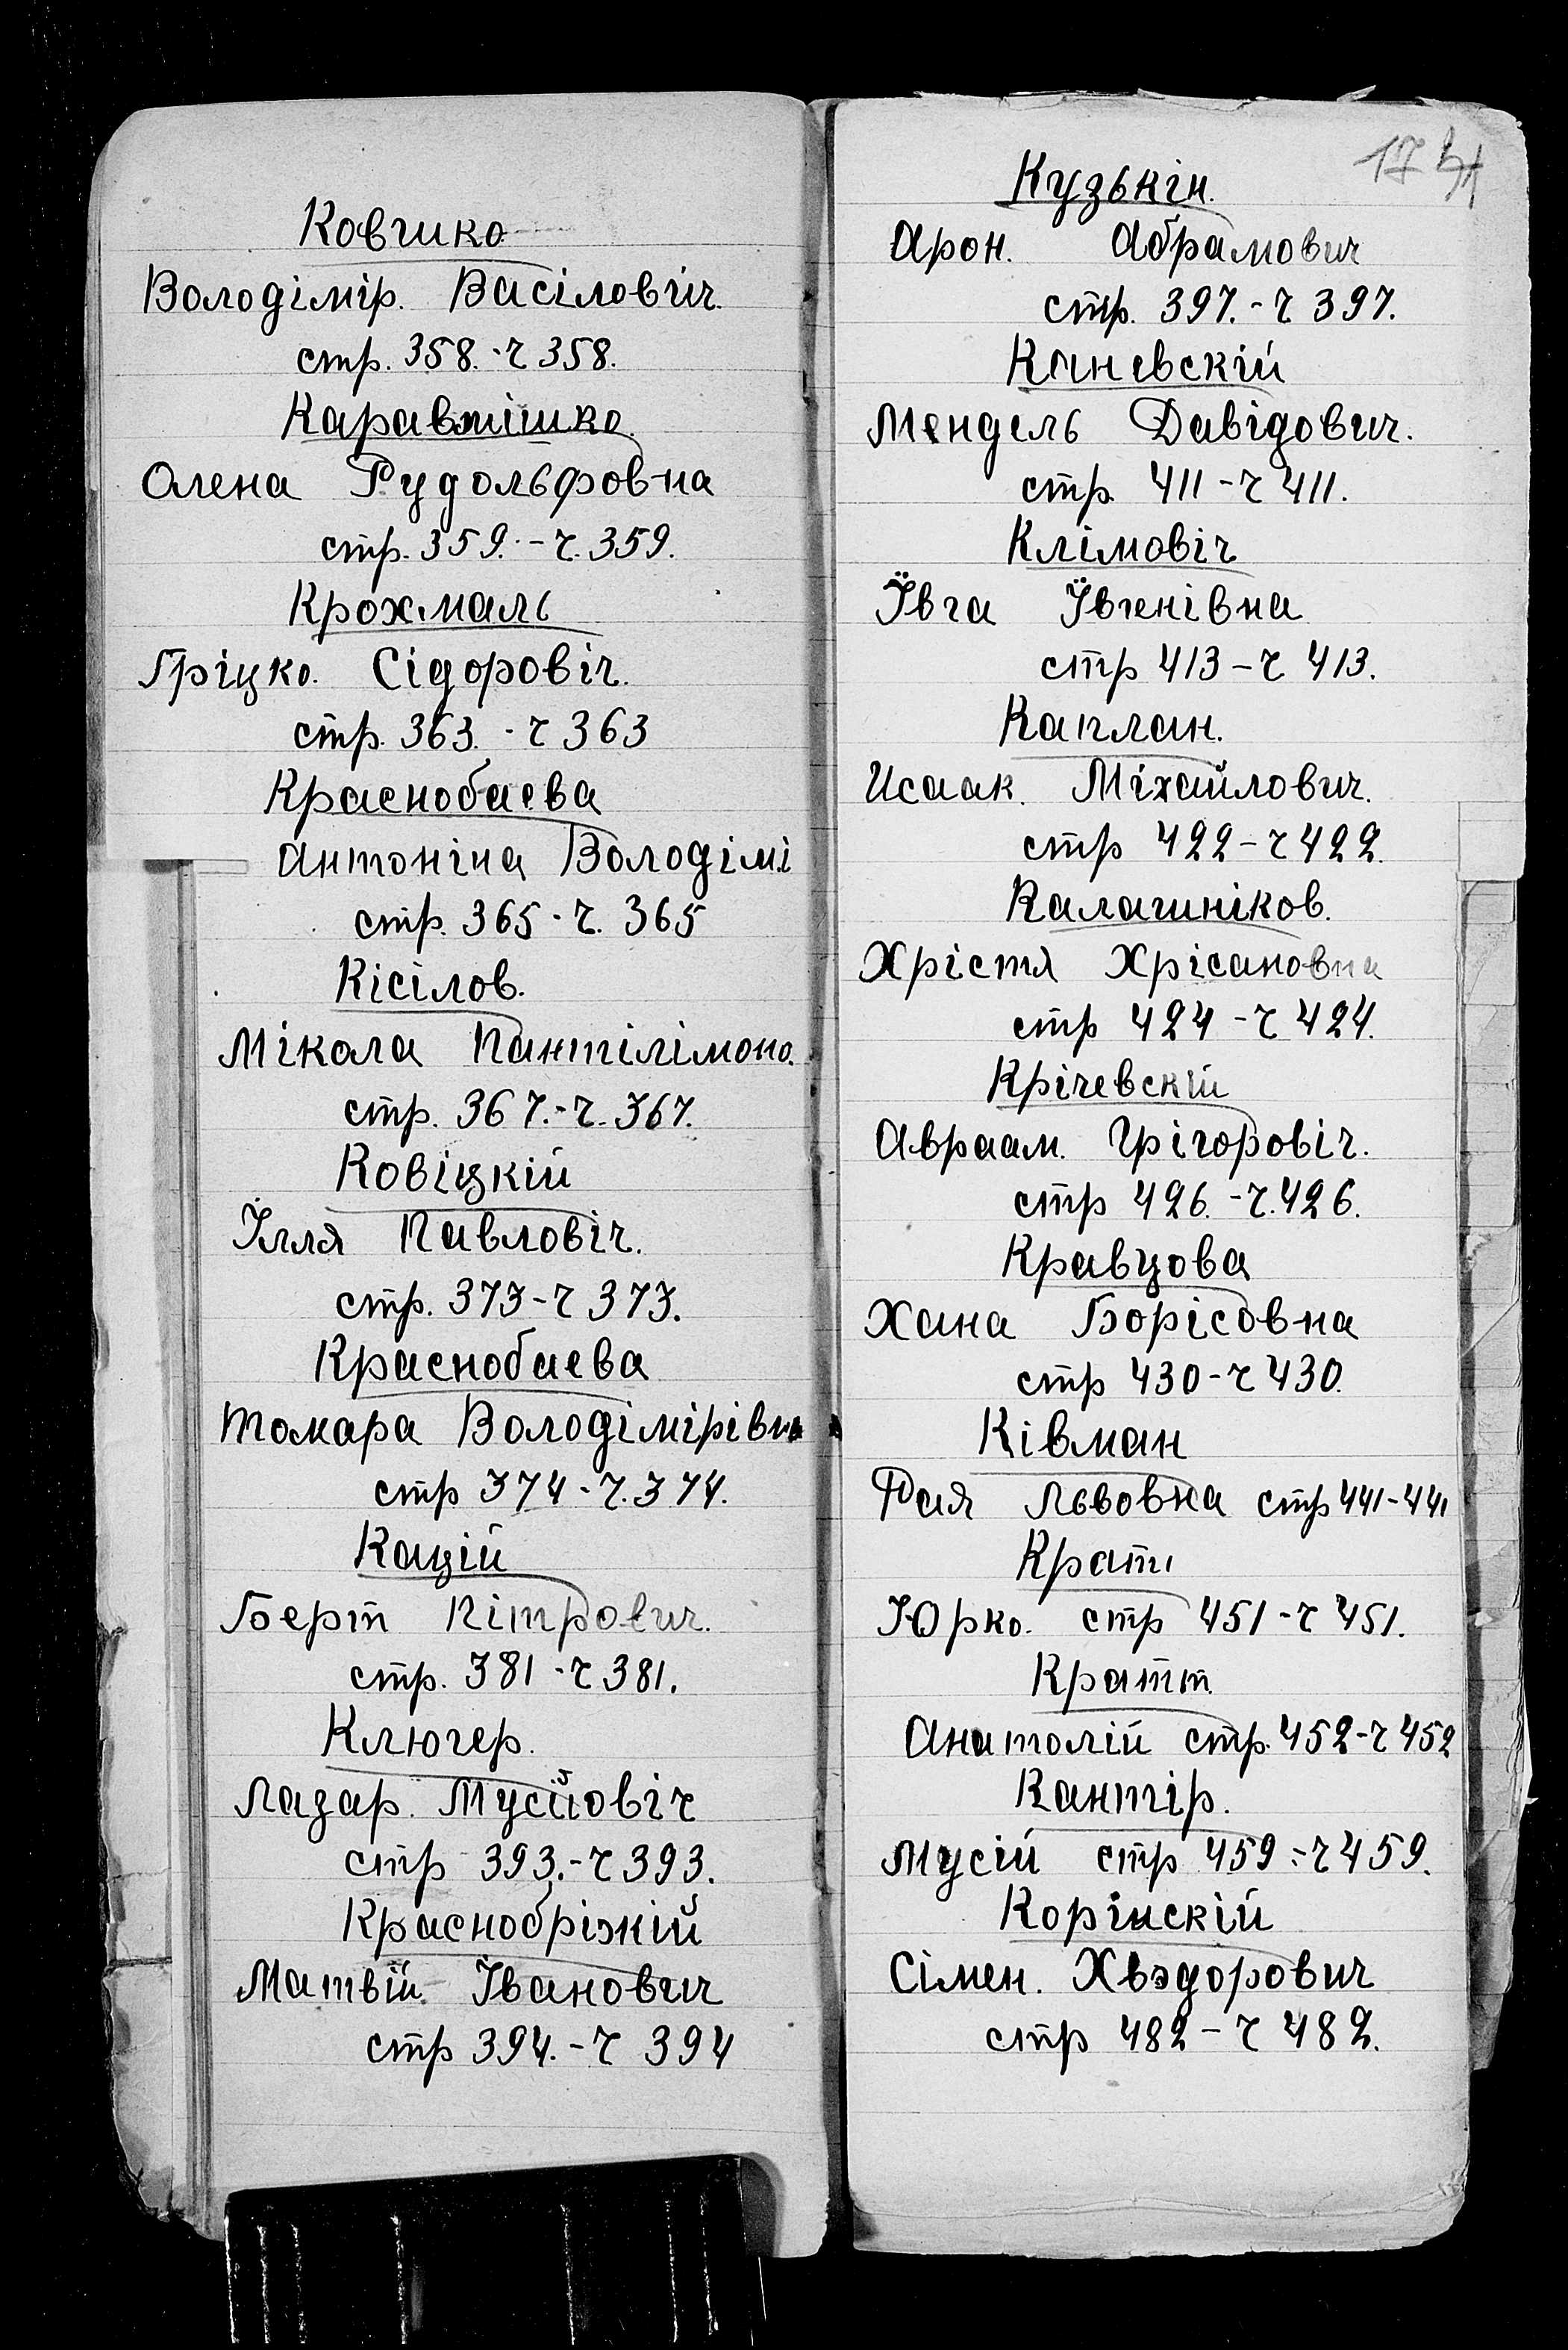 Ковшко
Володімір. Васіловіч.
стр. 358.-ч 358.
Каравмішко.
Олена Рудольфовна
стр. 359.-ч. 359.
Крохмаль
Гріцко. Сідоровіч.
стр. 363.-ч 363
Краснобаева
Антоніна Володімі
стр. 365-ч. 365
Кісілов.
Мікола Пантілімоно.
стр. 367.-ч. 367.
Ковіцкій
Ілля Павловіч.
стр. 373-ч 373.
Краснобаева
Томара Володімірівна
стр 374-ч. 374.
Кацій
Боерт Пітрович.
стр. 381-ч 381.
Ключер.
Лазар. Мусійовіч
стр 393.-ч 393.
Краснобріжкій
Матвій Іванович
стр 394.-ч 394
17
Кузькін.
Арон. Абрамович
стр. 397.-ч 397.
Каневскій
Мендель Давідович.
стр. 411-ч 411.
Клімовіч
Ївга Ївгенівна
стр 413-ч 413.
Каплан.
Исаак. Міхайлович.
стр 422-ч 422.
Калашніков.
Хрістя Хрісановна
стр 424-ч 424.
Крічевскій
Авраам. Грігоровіч.
стр 426.-ч. 426.
Кравцова
Хана Борісовна
стр 430-ч 430.
Ківман
Рая Львовна стр 441-441
Крат
Юрко. стр 451-ч 451.
Кратт
Анатолій стр. 452-ч 452
Кантір.
Мусій стр 459-ч 459.
Корінскій
Сімен. Хвэдорович
стр 482-ч 482.